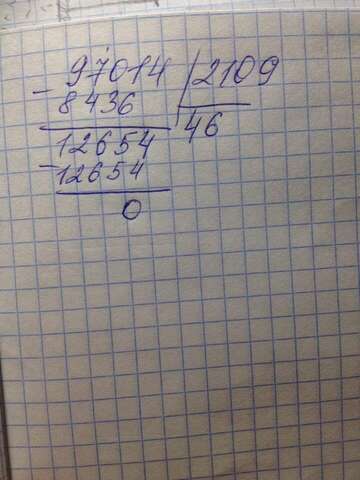 97014 | 2109
- 8436 | 46
12654
- 12654
0